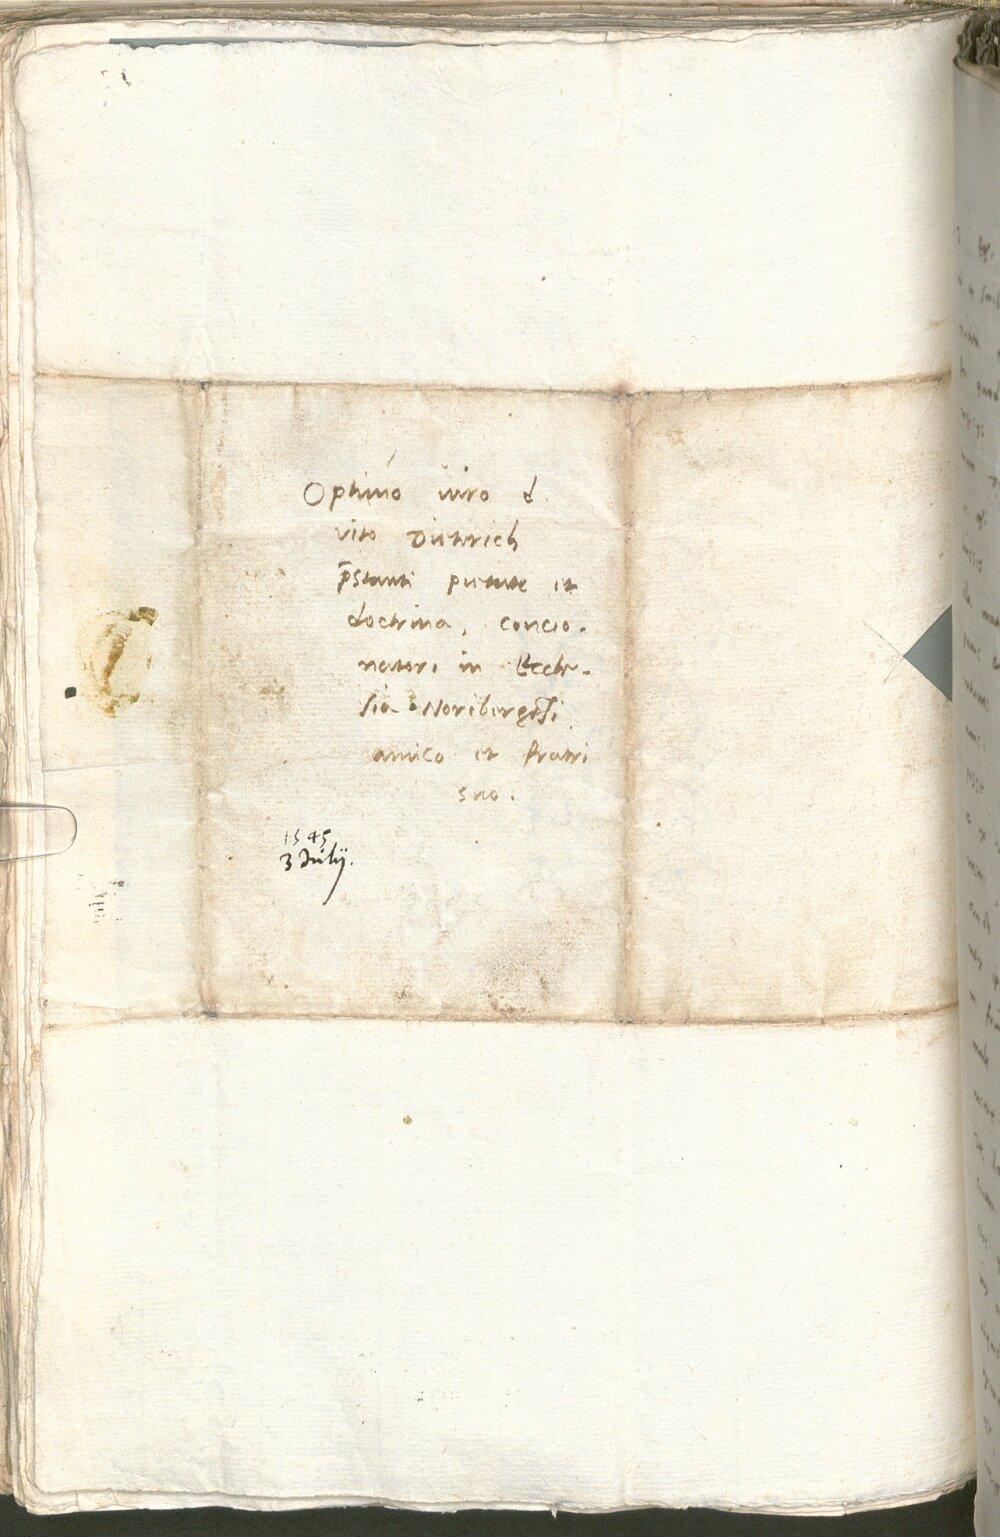 Optimo viro d.
vito Dieterich
p̄stanti pietate et
doctrina, concio-
natori in Eccle-
sia Noribergēsi
amico et fratri
suo.
1545
3 Julij.